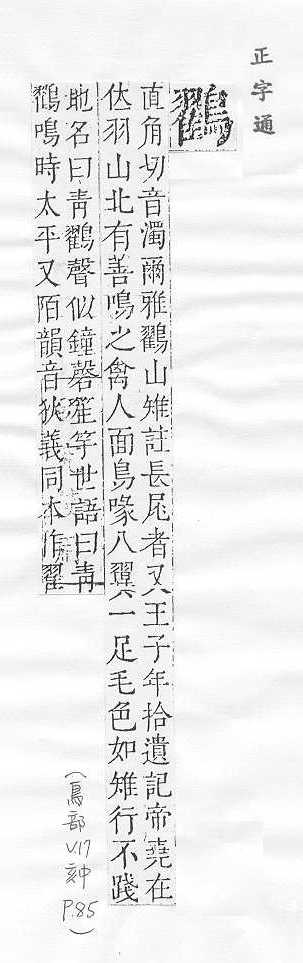 正字通
鸐
直角切音濁爾雅鸐山雉註長尾者又王子年拾遺記帝堯在
位羽山北有善鳴之禽人面鳥喙八翼一足毛色如雉行不踐
地名曰青鸐聲似鐘磬笙竽世語曰青
鸐鳴時太平又陌韻音狄義同本作翟
(鳥部 V.17 P.85)